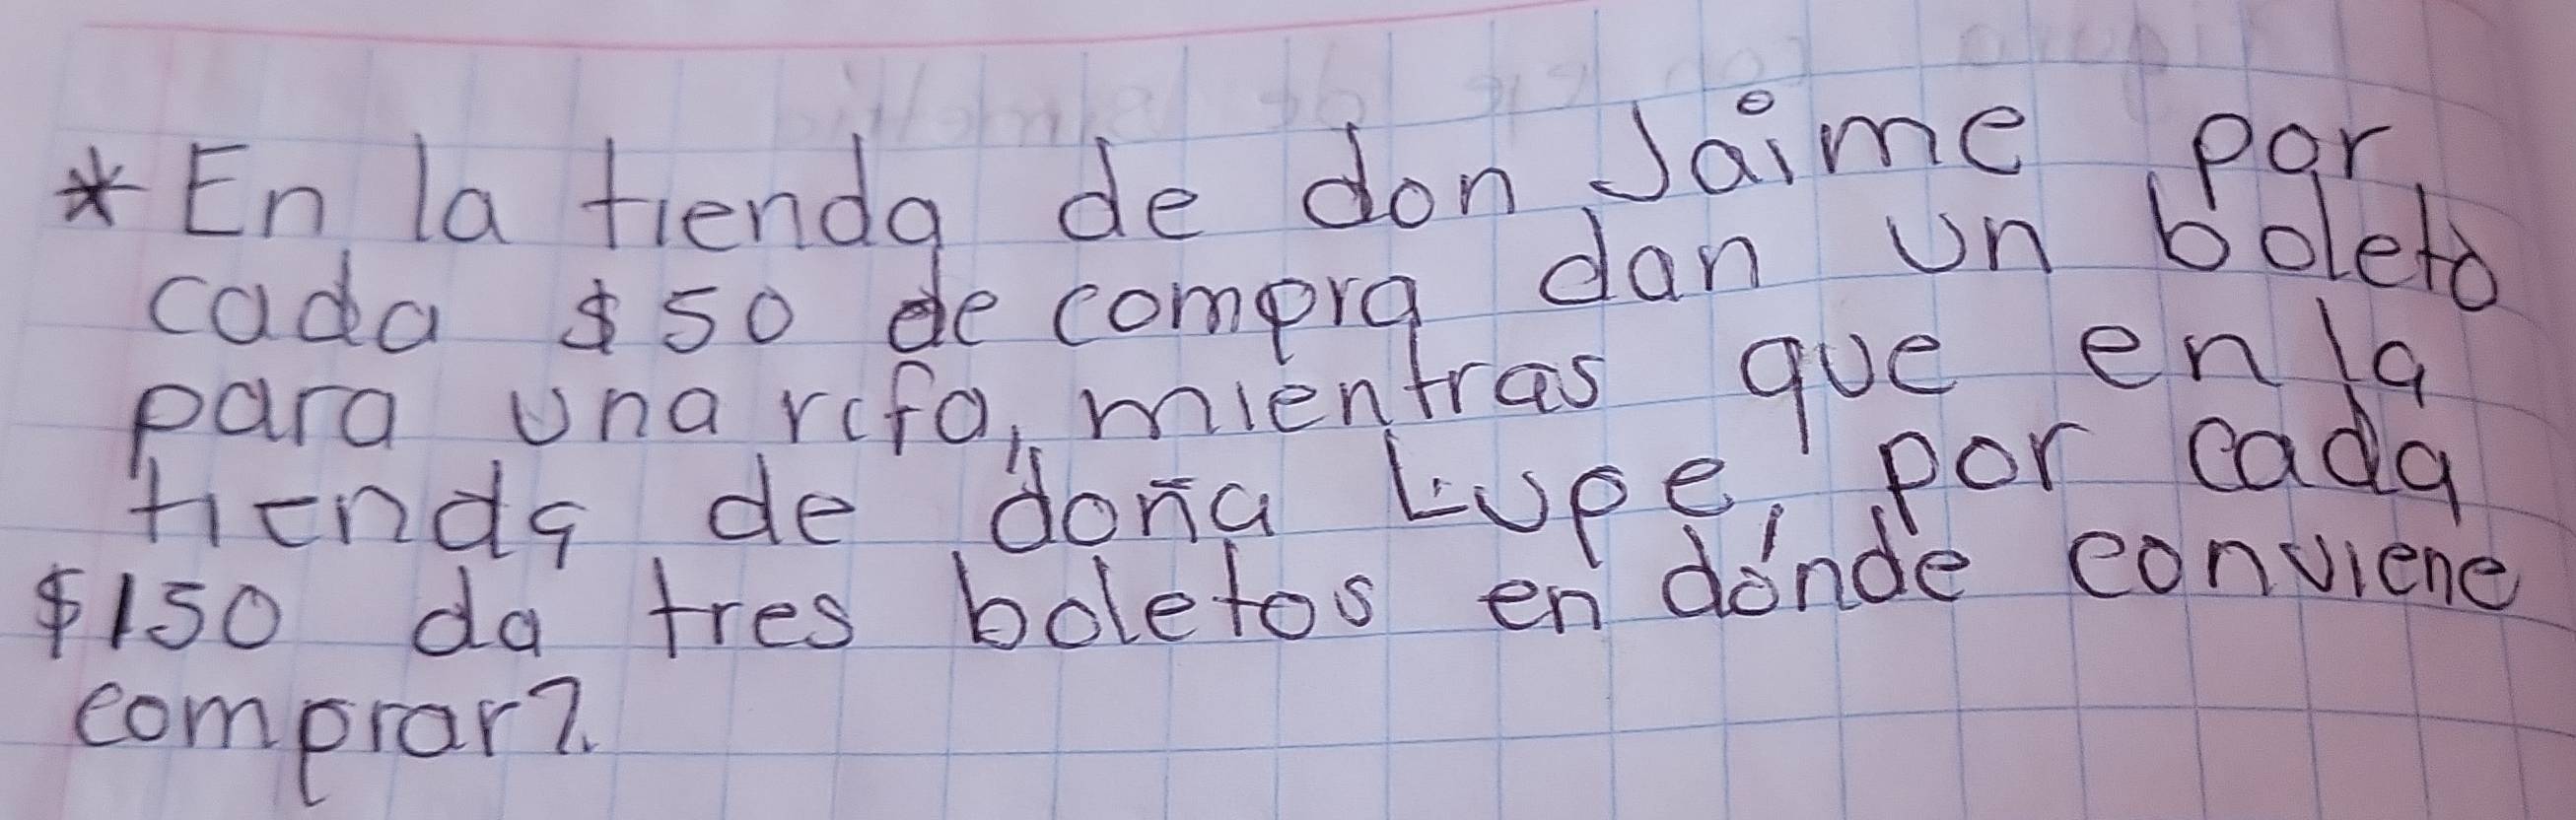 * En la tienda de don Jaime por
cada $50 de compra dan un boleto
para una rifa, mientras que en la
tienda de doña Lupe, por cada
$150 da tres boletos en dónde conviene
comprar?